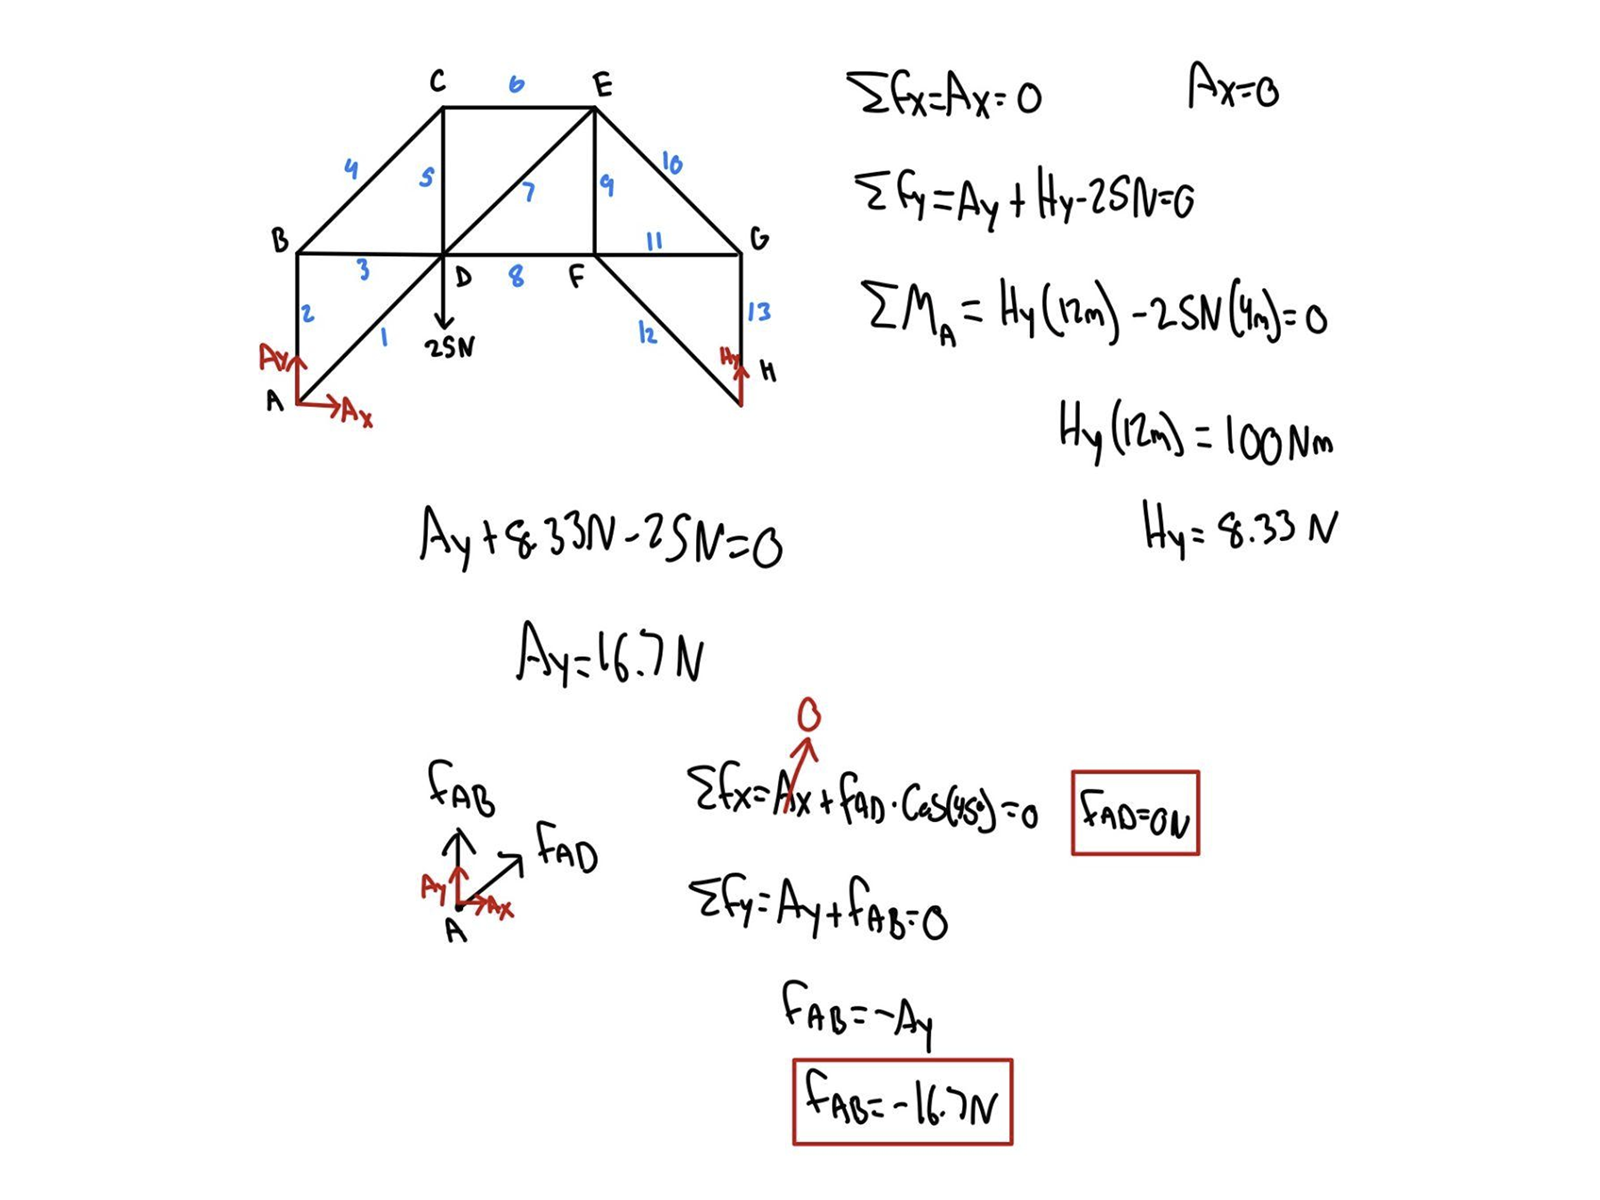 C 6 E
4 5 7 9 10
B 3 D 8 F 11 G
2 1 25N 12 13
Ay Hy H
A Ax
Σfx=Ax=0 Ax=0
Σfy=Ay+Hy-25N=0
ΣM_A = Hy(12m) -25N(4m)=0
Hy(12m) = 100Nm
Hy= 8.33 N
Ay+8.33N-25N=0
Ay=16.7N
0
fAB
fAD
Ay Ax
A
Σfx=Ax+fAD·Cos(45°)=0 fAD=0N
Σfy=Ay+fAB=0
fAB=-Ay
fAB=-16.7N